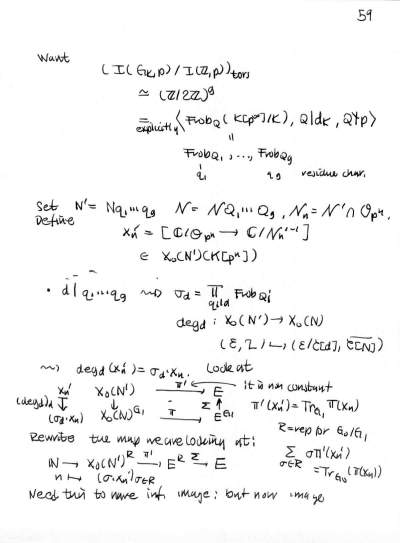 59
Want
(I(G_K,p)/I(Z,p))_tors
≃ (Z/2Z)^g
= explicitly ⟨Frob_Q (K[p^∞]/K), Q|d_K, Q∤p⟩
"
Frob_{Q_1}, ..., Frob_{Q_g}
q_1 q_g residue char.
Set N' = Nq_1...q_g 𝒩 = 𝒩Q_1...Q_g, 𝒩_n = 𝒩' ∩ O_{p^n}.
Define
x_n' = [ℂ/O_{p^n} → ℂ/𝒩_n'^{-1}]
∈ X_0(N')(K[p^n])
• d | q_1...q_g ⇝ σ_d = ∏_{q_i|d} Frob_{Q_i}
deg_d : X_0(N') → X_0(N)
⇝ deg_d(x_n') = σ_d·x_n. Look at
x_n' X_0(N') π' → E it is non constant
(deg_d)_d ↓ ↓ Σ ↑ π'(x_n') = Tr_{G_1} π(x_n)
(σ_d·x_n) X_0(N)^{G_1} π → E^{G_1}
R = rep for G_0/G_1
Rewrite the map we are looking at:
Σ_{σ∈R} σπ'(x_n')
ℕ → X_0(N')^R π' → E^R Σ → E = Tr_{G_0}(π(x_n))
n ↦ (σ·x_n')_{σ∈R}
Need this to have inf. image: but now image